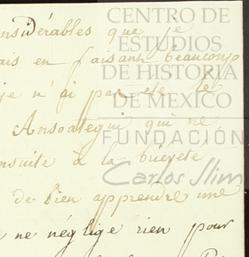 considérables que je
ais en faisant beaucoup
je n'ai pas été le
Ansoategui qui se
ensuite à la buvete
de bien apprendre une
ne néglige rien pour
CENTRO DE
ESTUDIOS
DE HISTORIA
DE MEXICO
FUNDACIÓN
Carlos Slim